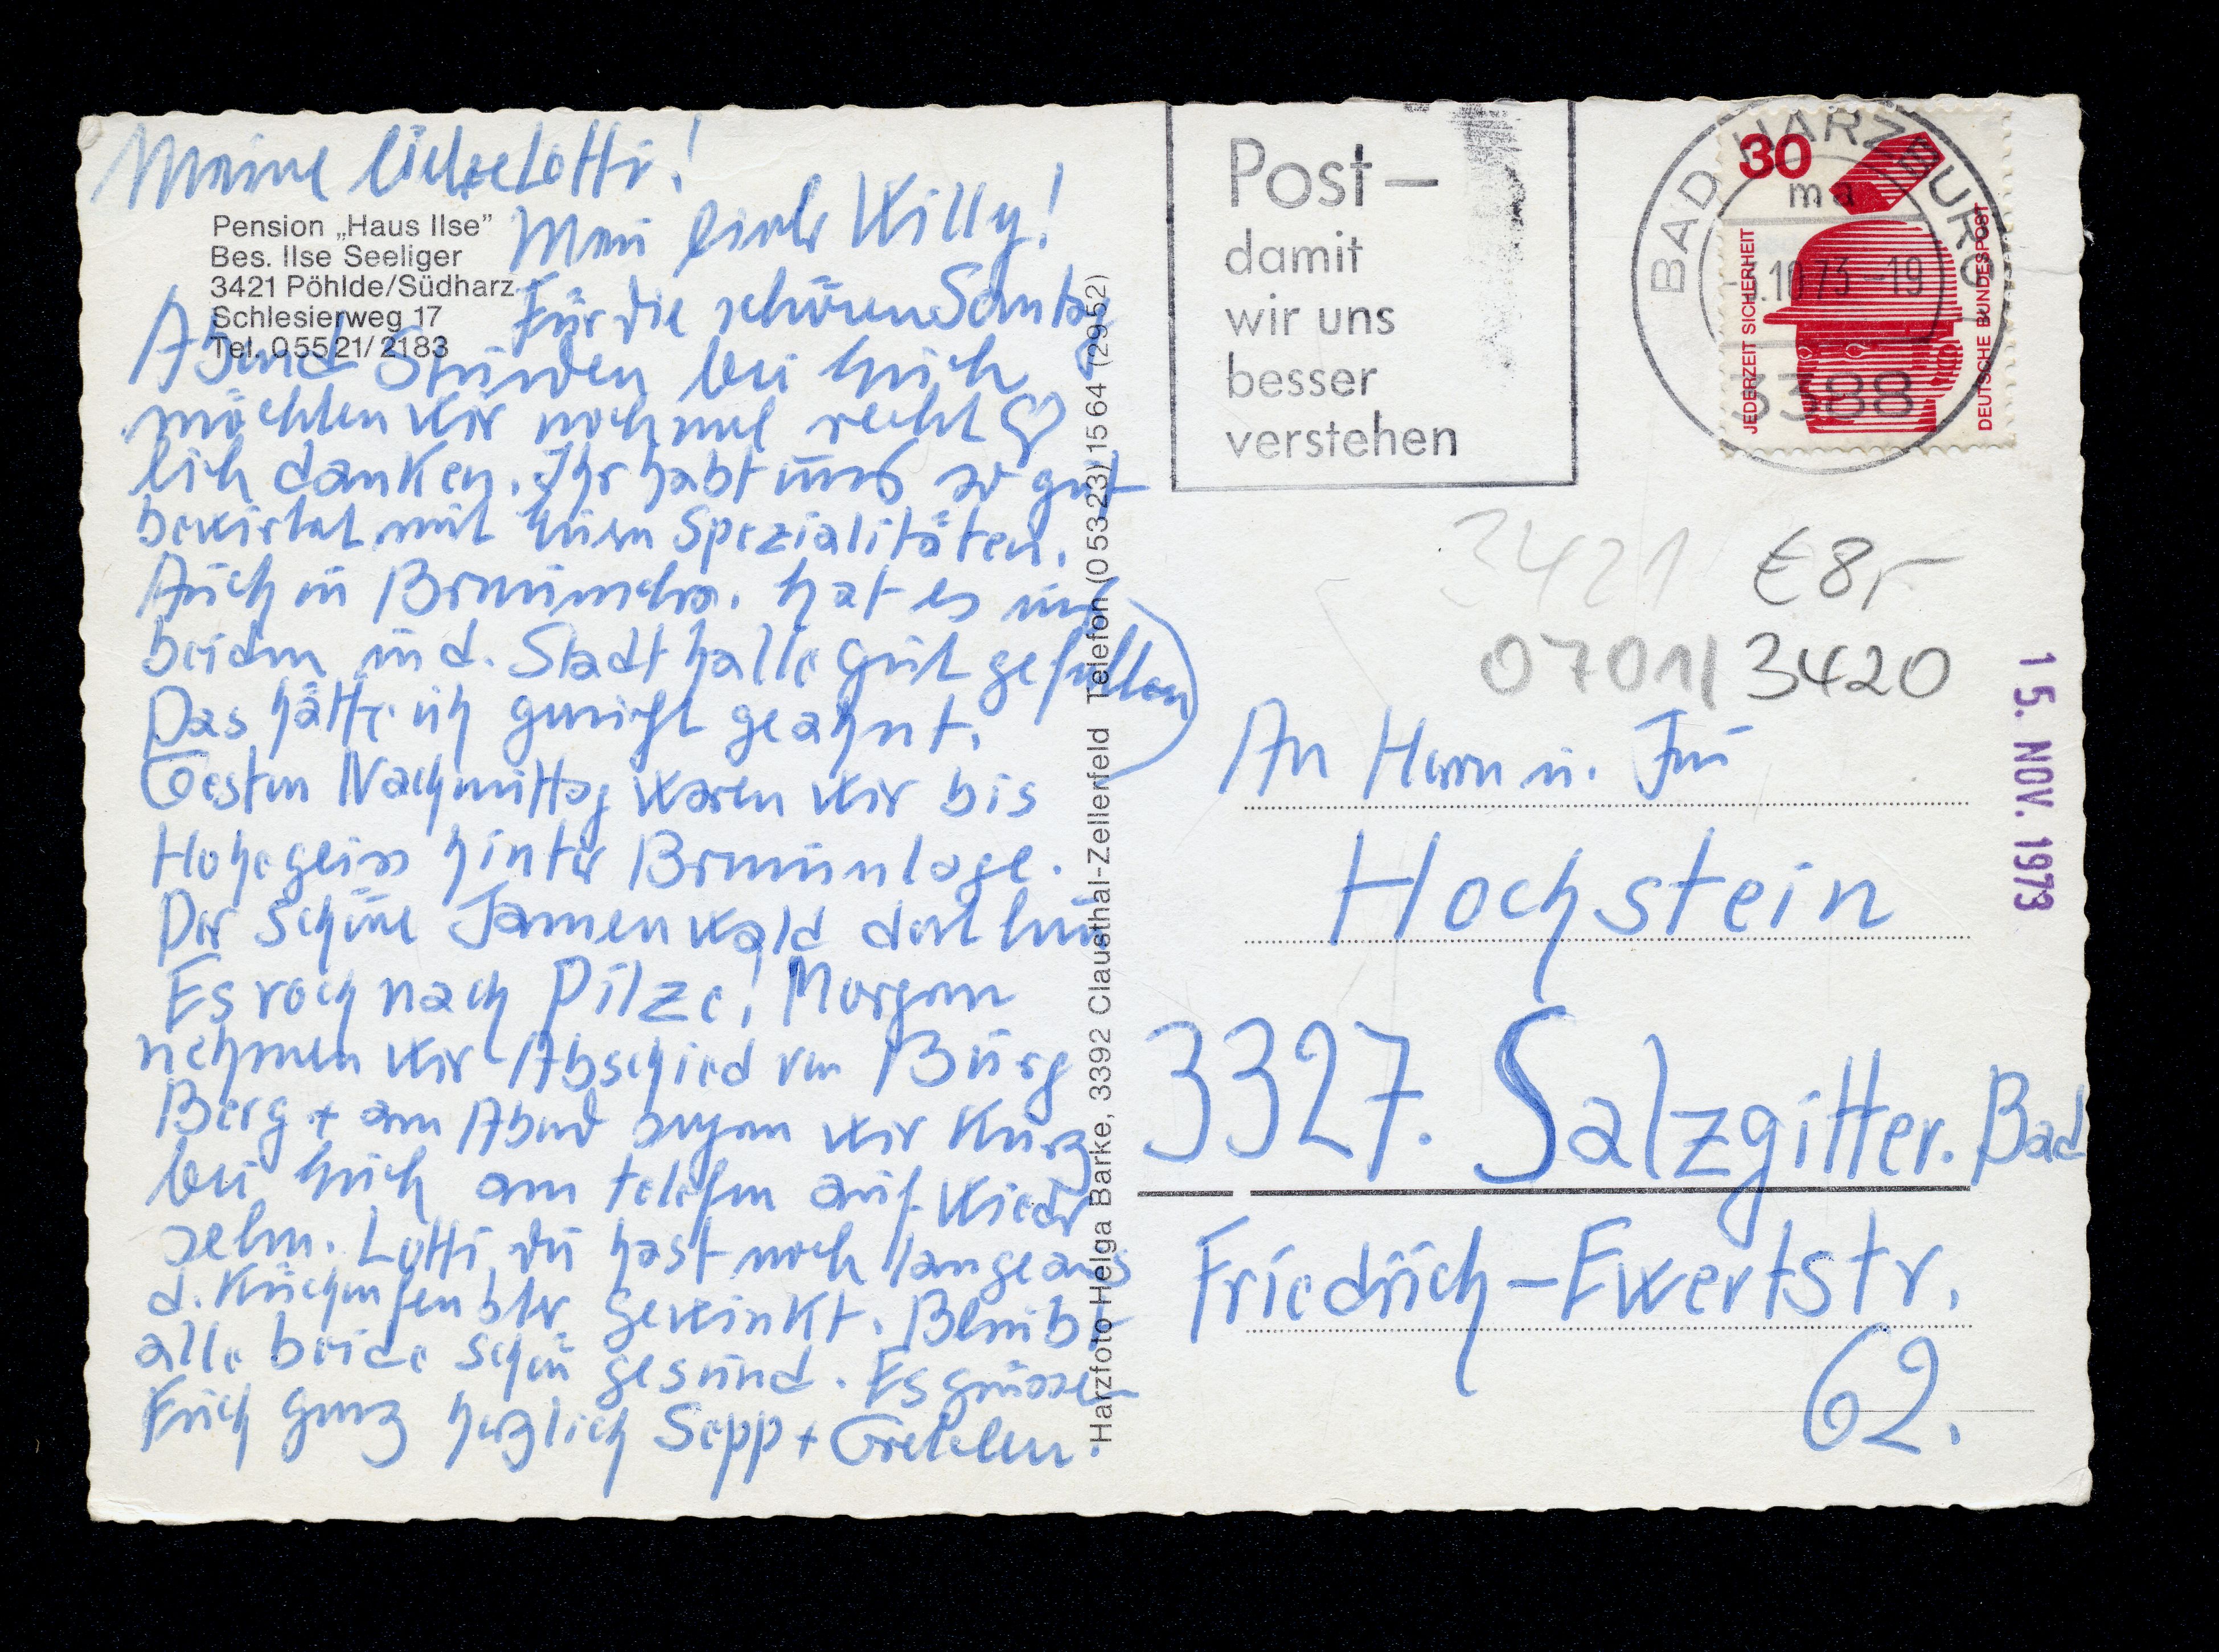 Meine liebe Lotti!
Mein lieber Willy!
Pension „Haus Ilse”
Bes. Ilse Seeliger
3421 Pöhlde/Südharz
Schlesierweg 17
Tel. 0 55 21/ 21 83
Für die schönen Sontag
Abend Stunden bei Euch
möchten wir nochmal recht ♡
lich danken. Ihr habt uns so gut
bewirtet mit Euren Spezialitäten.
Auch in Braunschw. hat es uns
beiden in d. Stadthalle gut gefallen
Das hätte ich gar nicht geahnt.
Gestern Nachmittag waren wir bis
Hohegeiss hinter Braunlage.
Der schöne Tannenwald dort
Es roch nach Pilze! Morgen
nehmen wir Abschied von Burg
Berg + am Abend sagen wir kurz
bei Euch am telefon auf Wieder
sehn. Lotti du hast noch lange aus
d. Küchenfenster gewinkt. Bleibt
alle beide schön gesund. Es grüssen
Euch ganz herzlich Sepp + Gretchen.
Harzfoto Helga Barke, 3392 Clausthal-Zellerfeld Telefon (0 53 23) 15 64 (29 52)
Post –
damit
wir uns
besser
verstehen
BAD HARZBURG
ma
.10.73-19
3388
30
JEDERZEIT SICHERHEIT
DEUTSCHE BUNDESPOST
3421 € 8,-
0701/ 3420
15. NOV. 1973
An Herrn u. Frau
Hochstein
3327. Salzgitter. Bad
Friedrich-Ewertstr.
62.